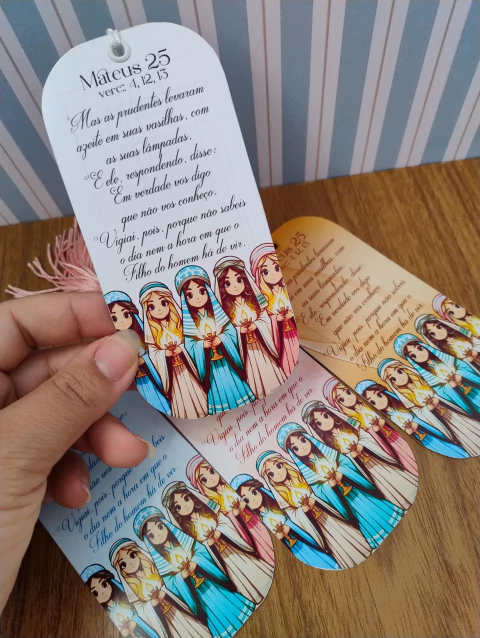 Mateus 25
vere: 4, 12, 13
Mas as prudentes levaram
azeite em suas vasilhas, com
as suas lâmpadas.
E ele, respondendo, disse:
Em verdade vos digo
que não vos conheço.
Vigiai, pois, porque não sabeis
o dia nem a hora em que o
Filho do homem há de vir.
25
12, 13
prudentes levaram
suas vasilhas, com
as suas lâmpadas.
respondendo, disse:
Em verdade vos digo
que não vos conheço.
Vigiai, pois, porque não sabeis
o dia nem a hora em que o
Filho do homem há de vir.
o dia nem a hora em que o
Filho do homem há de vir.
Vigiai, pois, porque não sabeis
o dia nem a hora em que o
Filho do homem há de vir.